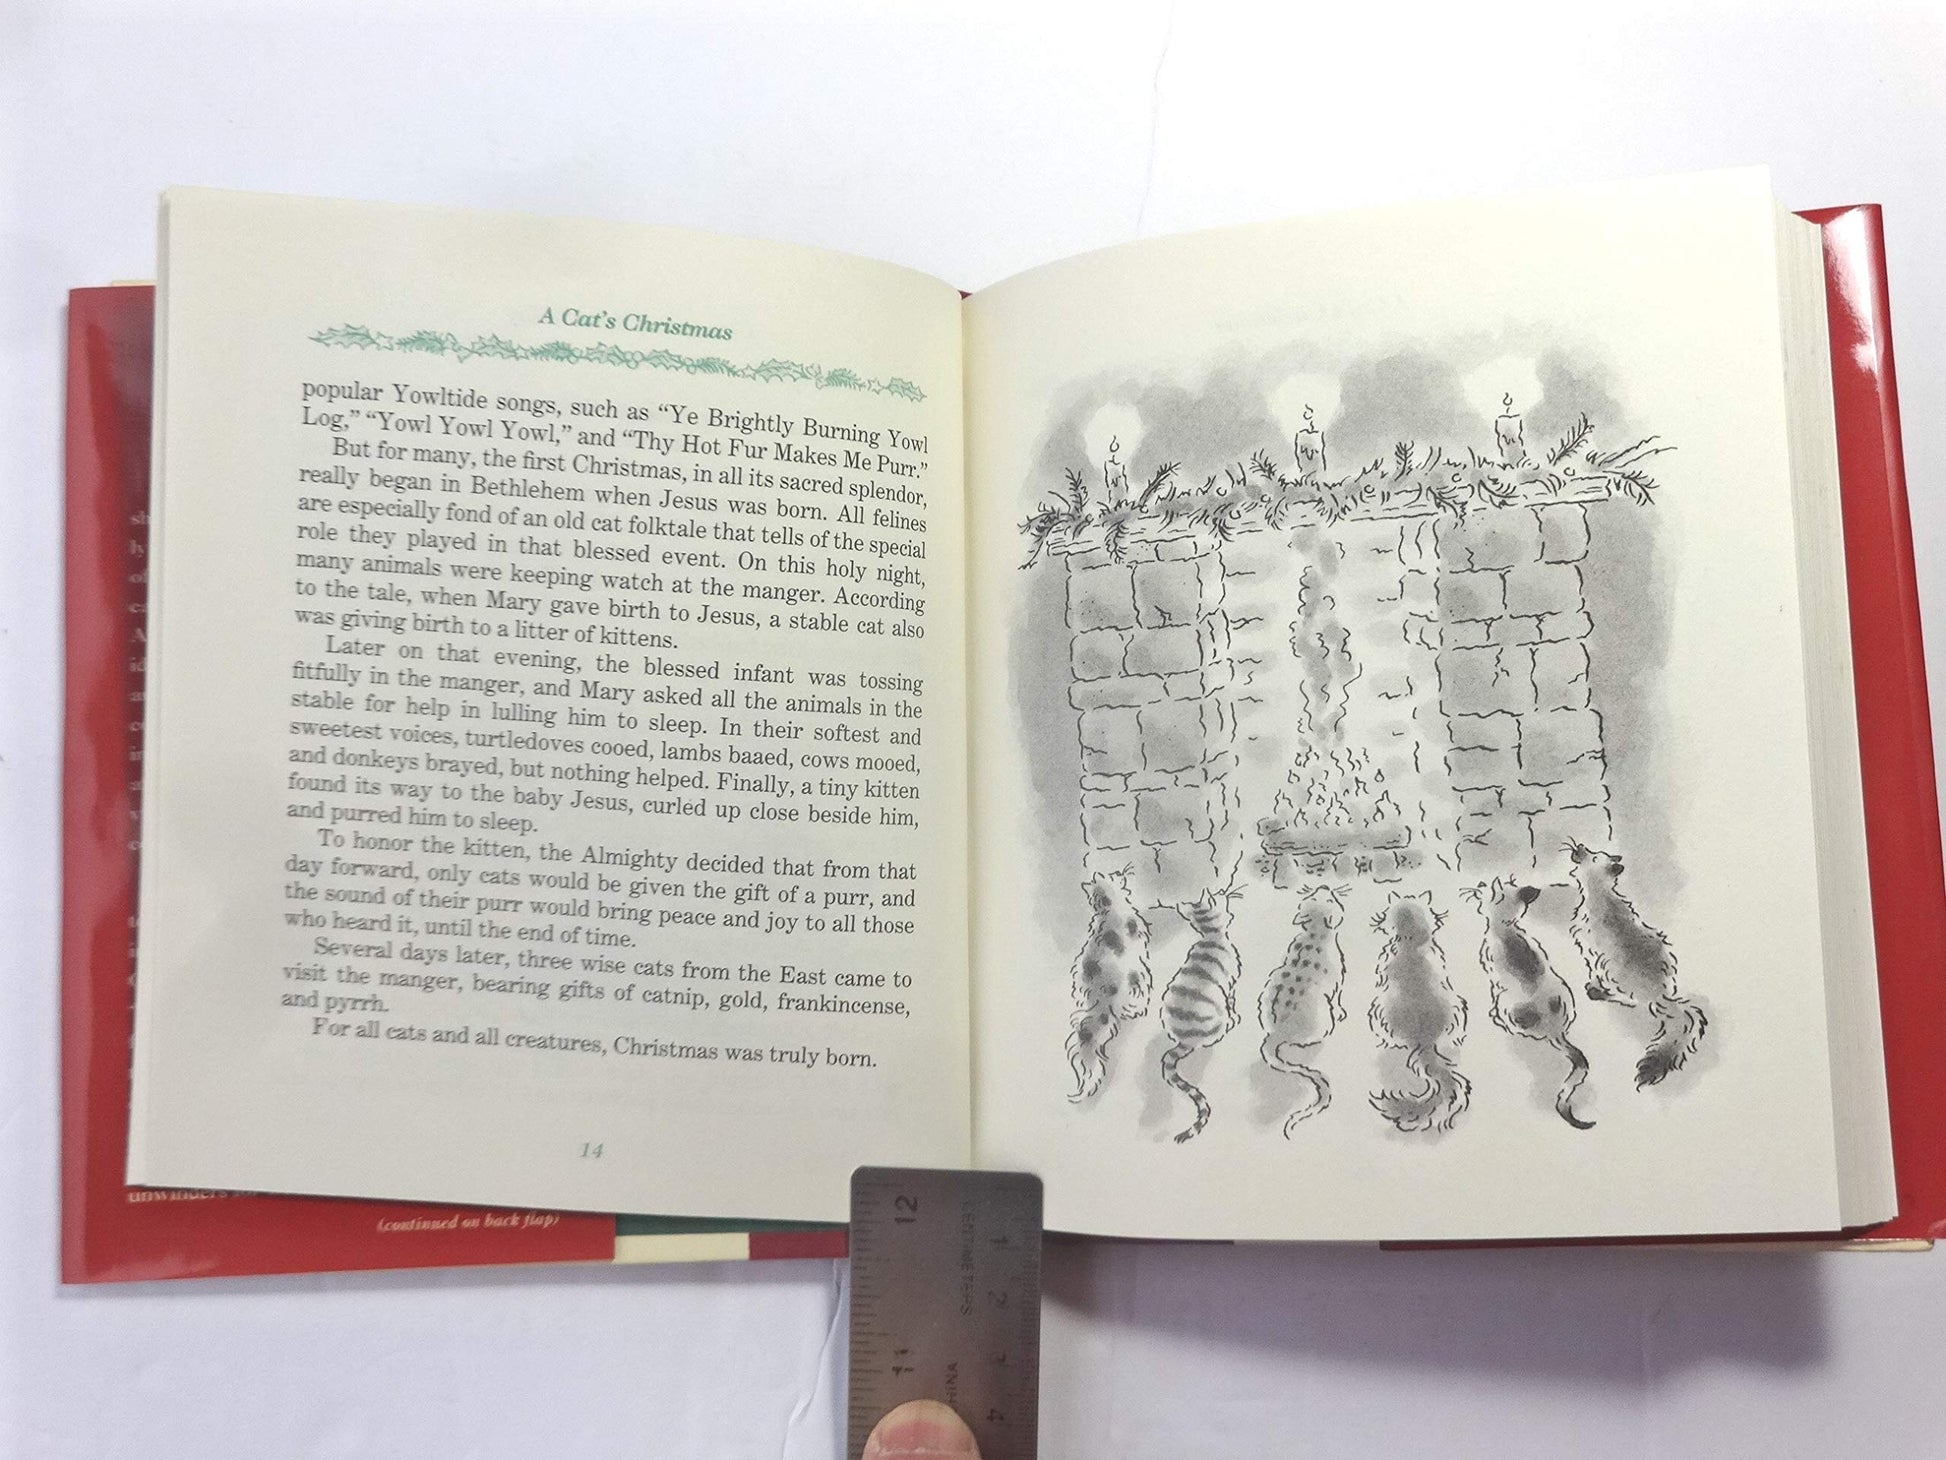 A Cat's Christmas
popular Yowltide songs, such as “Ye Brightly Burning Yowl
Log,” “Yowl Yowl Yowl,” and “Thy Hot Fur Makes Me Purr.”
But for many, the first Christmas, in all its sacred splendor,
really began in Bethlehem when Jesus was born. All felines
are especially fond of an old cat folktale that tells of the special
role they played in that blessed event. On this holy night,
many animals were keeping watch at the manger. According
to the tale, when Mary gave birth to Jesus, a stable cat also
was giving birth to a litter of kittens.
Later on that evening, the blessed infant was tossing
fitfully in the manger, and Mary asked all the animals in the
stable for help in lulling him to sleep. In their softest and
sweetest voices, turtledoves cooed, lambs baaed, cows mooed,
and donkeys brayed, but nothing helped. Finally, a tiny kitten
found its way to the baby Jesus, curled up close beside him,
and purred him to sleep.
To honor the kitten, the Almighty decided that from that
day forward, only cats would be given the gift of a purr, and
the sound of their purr would bring peace and joy to all those
who heard it, until the end of time.
Several days later, three wise cats from the East came to
visit the manger, bearing gifts of catnip, gold, frankincense,
and pyrrh.
For all cats and all creatures, Christmas was truly born.
14
unwinders
(continued on back flap)
12
11
CENTIMETERS
1
2
3
4